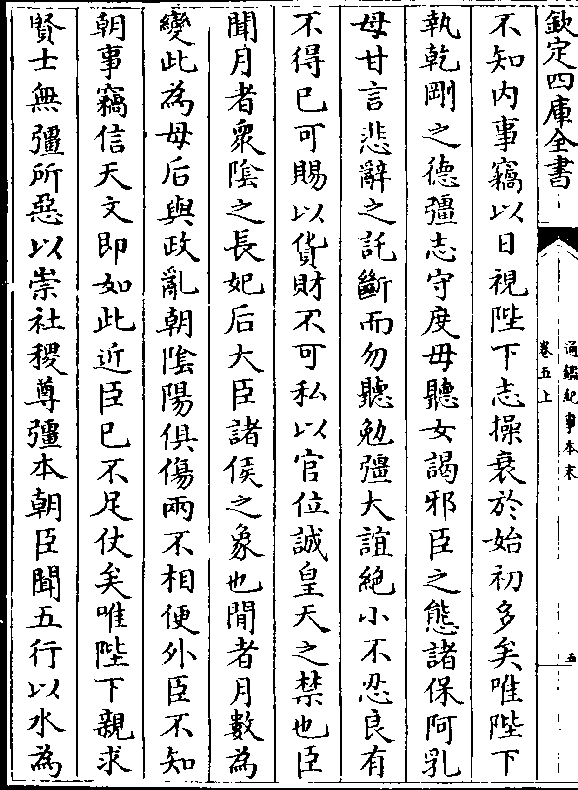 欽定四庫全書
通鑑紀事本末
卷五上
五
不知内事竊以日視陛下志操衰於始初多矣唯陛下
執乾剛之德彊志守度毋聽女謁邪臣之態諸保阿乳
母甘言悲辭之託斷而勿聽勉彊大誼絶小不忍良有
不得已可賜以貨財不可私以官位誠皇天之禁也臣
聞月者衆隂之長妃后大臣諸侯之象也閒者月數為
變此為母后與政亂朝隂陽俱傷兩不相便外臣不知
朝事竊信天文即如此近臣已不足仗矣唯陛下親求
賢士無彊所惡以崇社稷尊彊本朝臣聞五行以水為